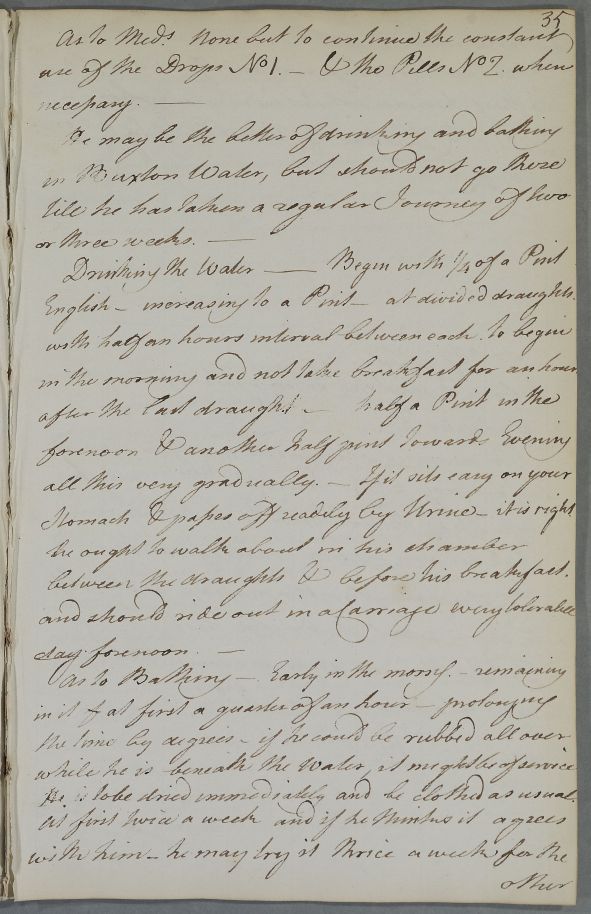 35
As to Meds. none but to continue the constant
use of the Drops No 1. — & the Pills No 2. when
necessary. —
He may be the better of drinking and bathing
in Buxton Water, but should not go there
till he has taken a regular Journey of two
or three weeks. —
Drinking the Water — Begin with 1/4 of a Pint
English — increasing to a Pint — at divided draughts.
with half an hours interval between each. to begin
in the morning and not take breakfast for an hour
after the last draught — half a Pint in the
forenoon & another half pint towards Evening
all this very gradually. — If it sits easy on your
Stomach & passes off readily by Urine — it is right
he ought to walk about in his chamber
between the draughts & before his breakfast.
and should ride out in a Carriage every tolerable
day forenoon. —
As to Bathing — Early in the morng. — remaining
in it at first a quarter of an hour — prolonging
the time by degrees — if he could be rubbed all over
while he is beneath the Water, it might be of service
He is to be dried immediately and be clothed as usual.
At first twice a week and if he thinks it agrees
with him — he may try it thrice a week for the
other